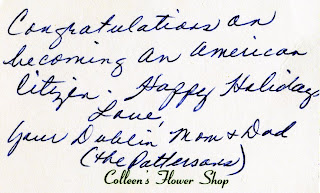 Congratulations on
becoming an American
Citizen. Happy Holidays
Love,
Your Dublin Mom & Dad
(the Pattersons)
Colleen's Flower Shop